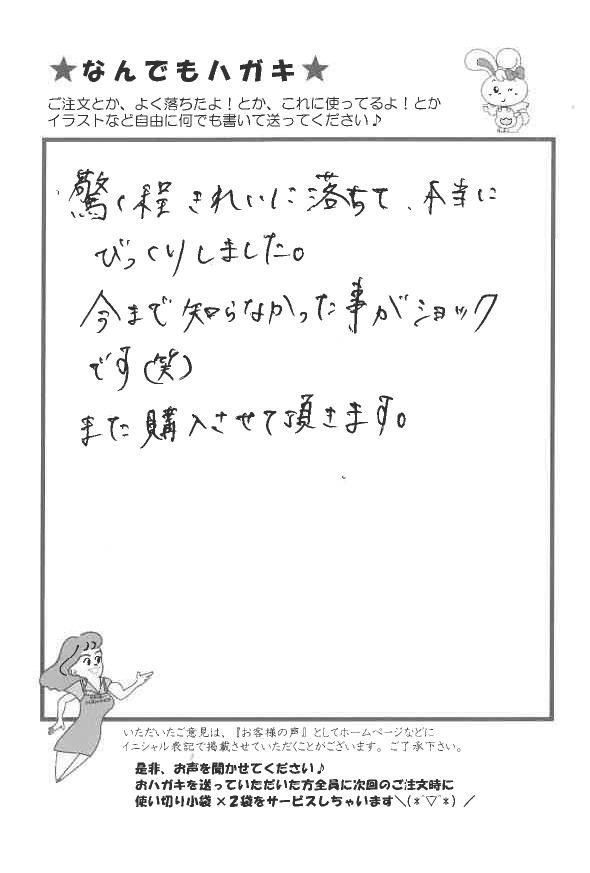 ★なんでもハガキ★
ご注文とか、よく落ちたよ！とか、これに使ってるよ！とか
イラストなど自由に何でも書いて送ってください♪
驚く程きれいに落ちて、本当に
びっくりしました。
今まで知らなかった事がショック
です(笑)
また購入させて頂きます。
いただいたご意見は、『お客様の声』としてホームページなどに
イニシャル表記で掲載させていただくことがございます。ご了承下さい。
是非、お声を聞かせてください♪
おハガキを送っていただいた方全員に次回のご注文時に
使い切り小袋×２袋をサービスしちゃいます＼(*^▽^*)／